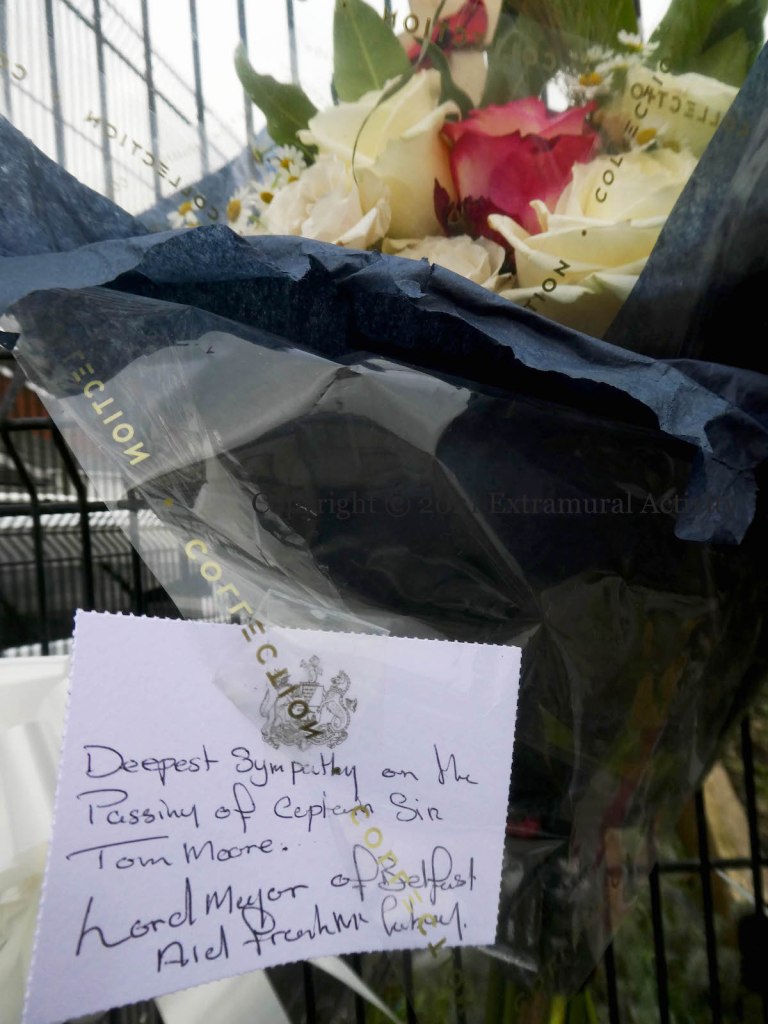 COLLECTION
COLLECTION
COLLECTION
COLLECTION
TION
LECTION
COLLECTION
Copyright © Extramural
Deepest Sympathy on the
Passing of Captain Sir
Tom Moore.
Lord Mayor of Belfast
Ald Frank Mc
COLLECT